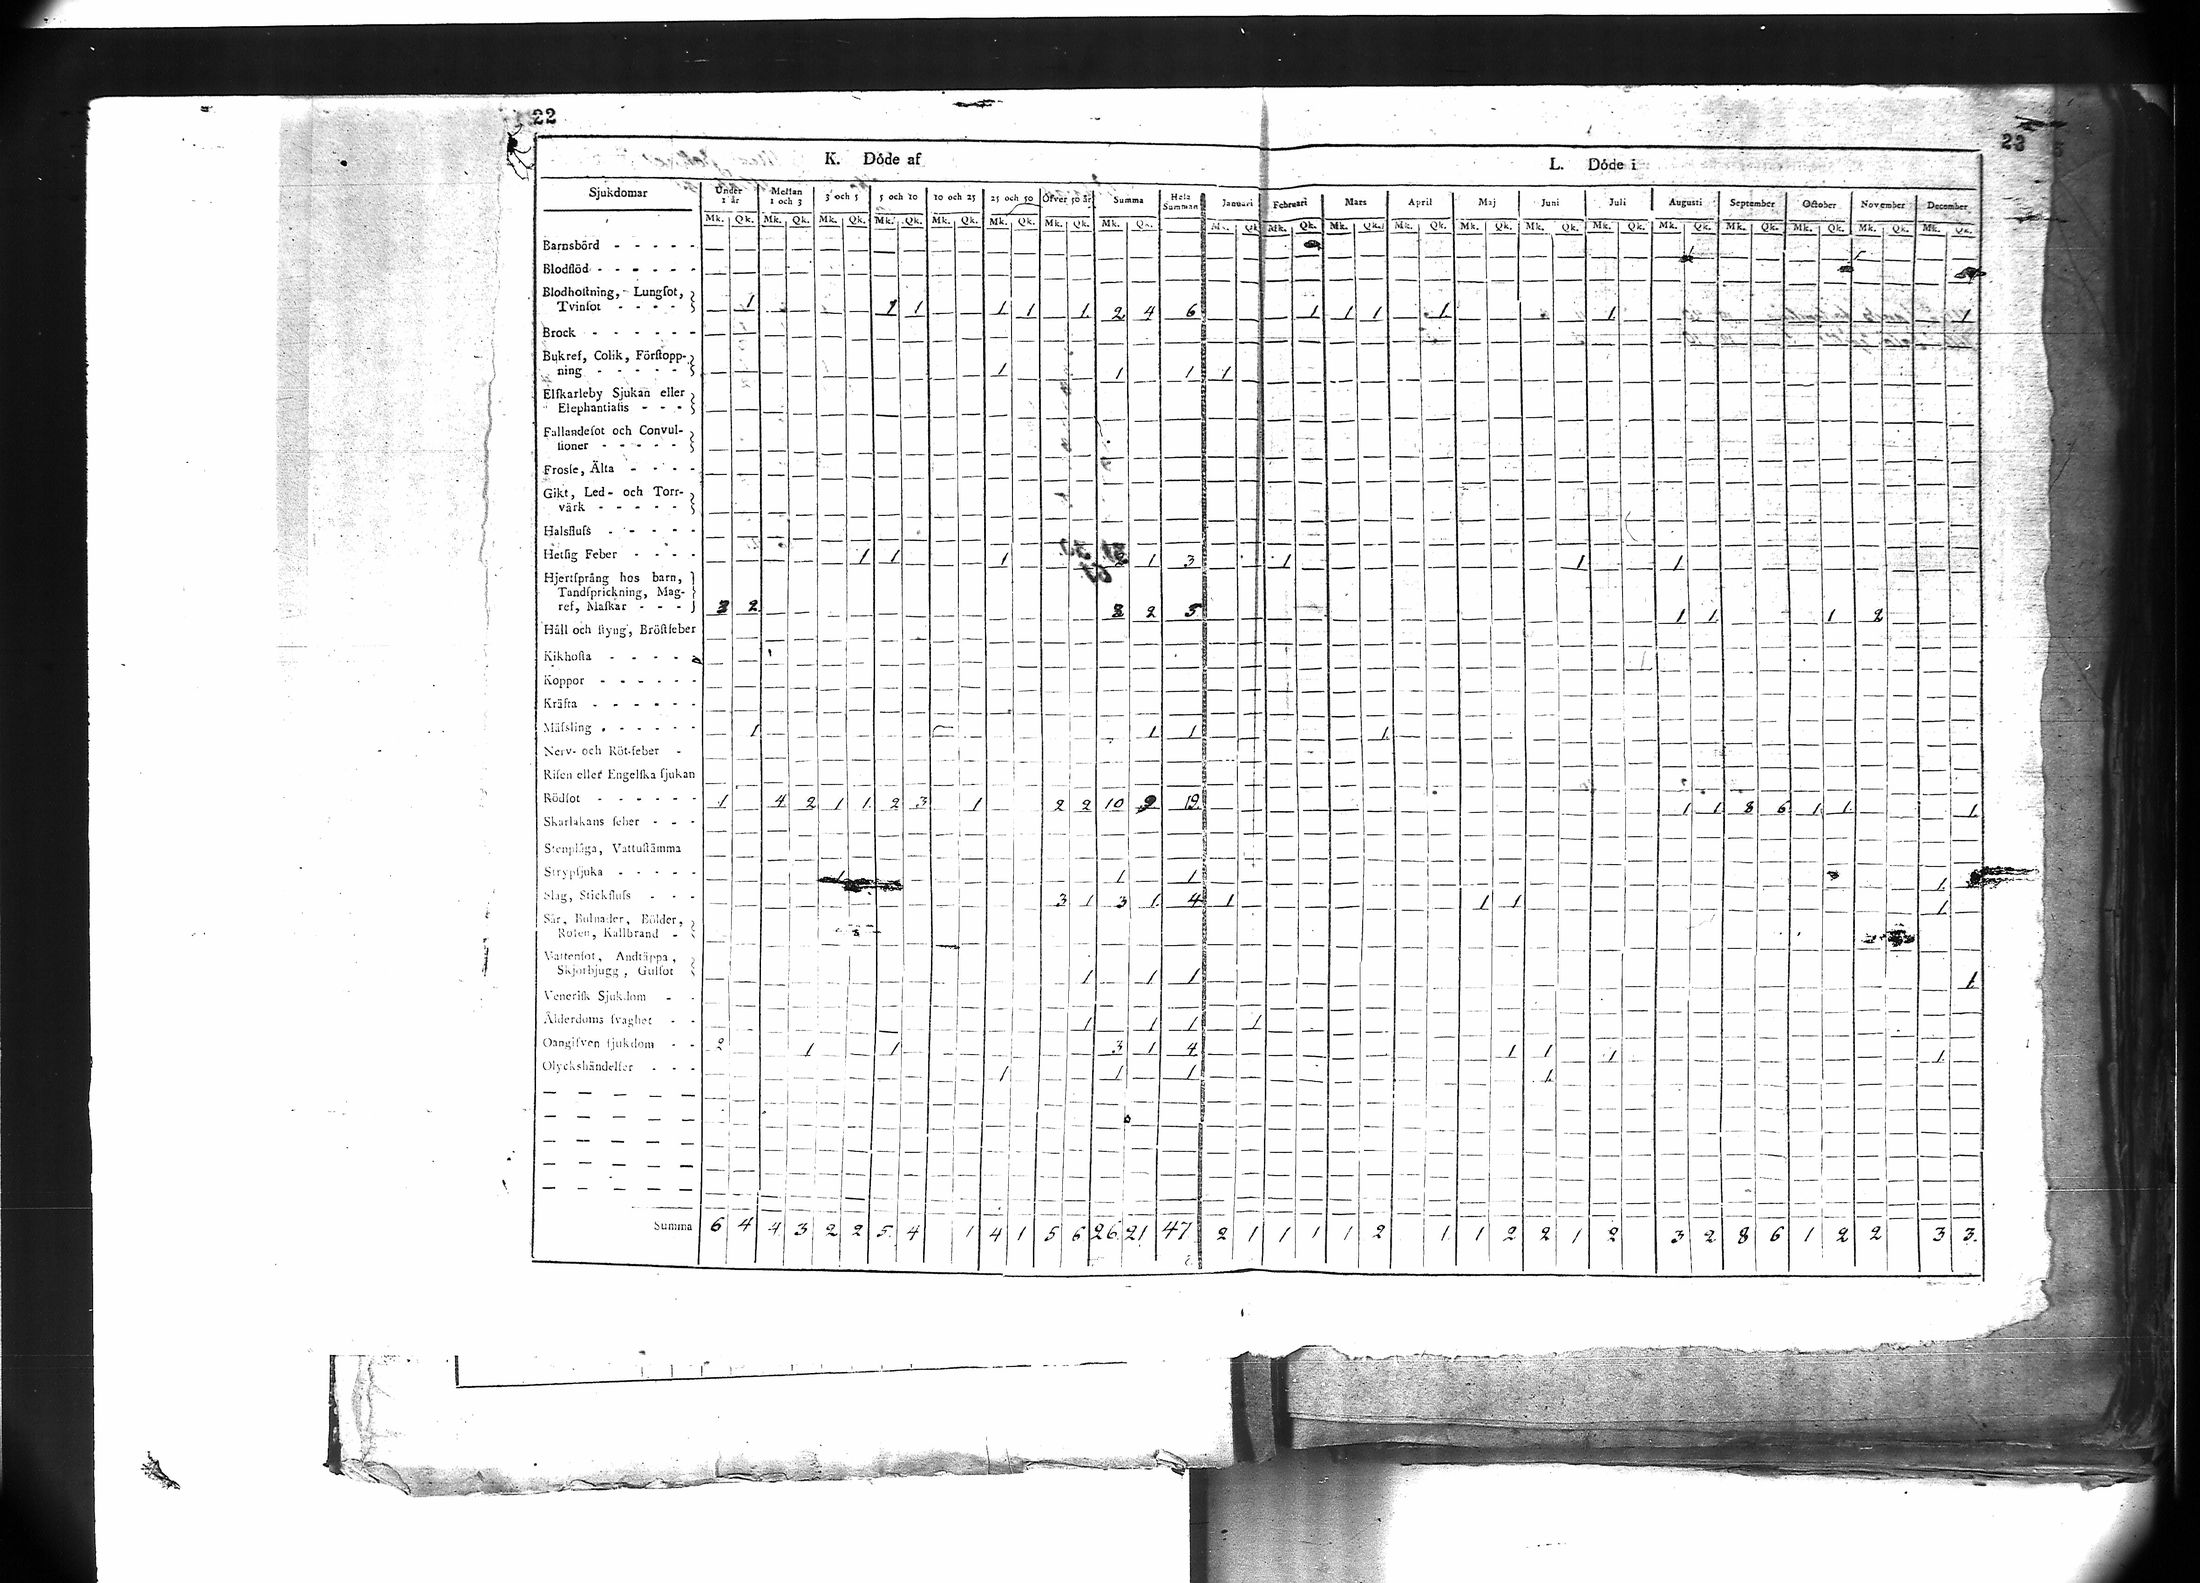 22
23
K. Döde af
L. Döde i
Sjukdomar Under 1 år Mellan 1 och 3 3 och 5 5 och 10 10 och 25 25 och 50 Öfver 50 år Summa Hela Summan Januari Februari Mars April Maj Juni Juli Augusti September October November December
Mk. Qk. Mk. Qk. Mk. Qk. Mk. Qk. Mk. Qk. Mk. Qk. Mk. Qk. Mk. Qk. Mk. Qk. Mk. Qk. Mk. Qk. Mk. Qk. Mk. Qk. Mk. Qk. Mk. Qk. Mk. Qk. Mk. Qk. Mk. Qk. Mk. Qk. Mk. Qk.
Barnsbörd - - - - -
Blodflöd - - - - - -
Blodhoſtning, Lungſot,
Tvinſot - - - - 1 1 1 1 1 1 2 4 6 1 1 1 1 1 1
Brock - - - - - -
Bukref, Colik, Förſtopp-
ning - - - - - 1 1 1 1
Elſkarleby Sjukan eller
Elephantiaſis - - -
Fallandeſot och Convul-
ſioner - - - - -
Frosſe, Älta - - - -
Gikt, Led- och Torr-
värk - - - - -
Halsfluſs - - - - -
Hetſig Feber - - - - 1 1 1 2 1 3 1 1 1
Hjertſprång hos barn,
Tandſprickning, Mag-
ref, Maſkar - - - 3 2 3 2 5 1 1 1 2
Håll och ſtyng, Bröſtfeber
Kikhoſta - - - - -
Koppor - - - - - -
Kräfta - - - - - -
Mäſsling - - - - - - 1 1 1 1
Nerv- och Röt-feber -
Riſen eller Engelſka ſjukan
Rödſot - - - - - - 1 4 2 1 1 2 3 1 2 2 10 9 19 1 1 8 6 1 1 1
Skarlakans feber - - -
Stenplåga, Vattuſtämma
Strypſjuka - - - - - 1 1 1 1
Slag, Stickfluſs - - - 3 1 3 1 4 1 1 1 1
Sår, Bulnader, Bölder,
Roſen, Kallbrand -
Vattenſot, Andtäppa,
Skjörbjugg, Gulſot 1 1 1 1
Veneriſk Sjukdom - -
Ålderdoms ſvaghet - - 1 1 1 1
Oangifven ſjukdom - - 2 1 1 3 1 4 1 1 1 1
Olyckshändelſer - - - 1 1 1 1
Summa 6 4 4 3 2 2 5 4 1 4 1 5 6 26 21 47 2 1 1 1 1 2 1 1 2 2 1 2 3 2 8 6 1 2 2 3 3